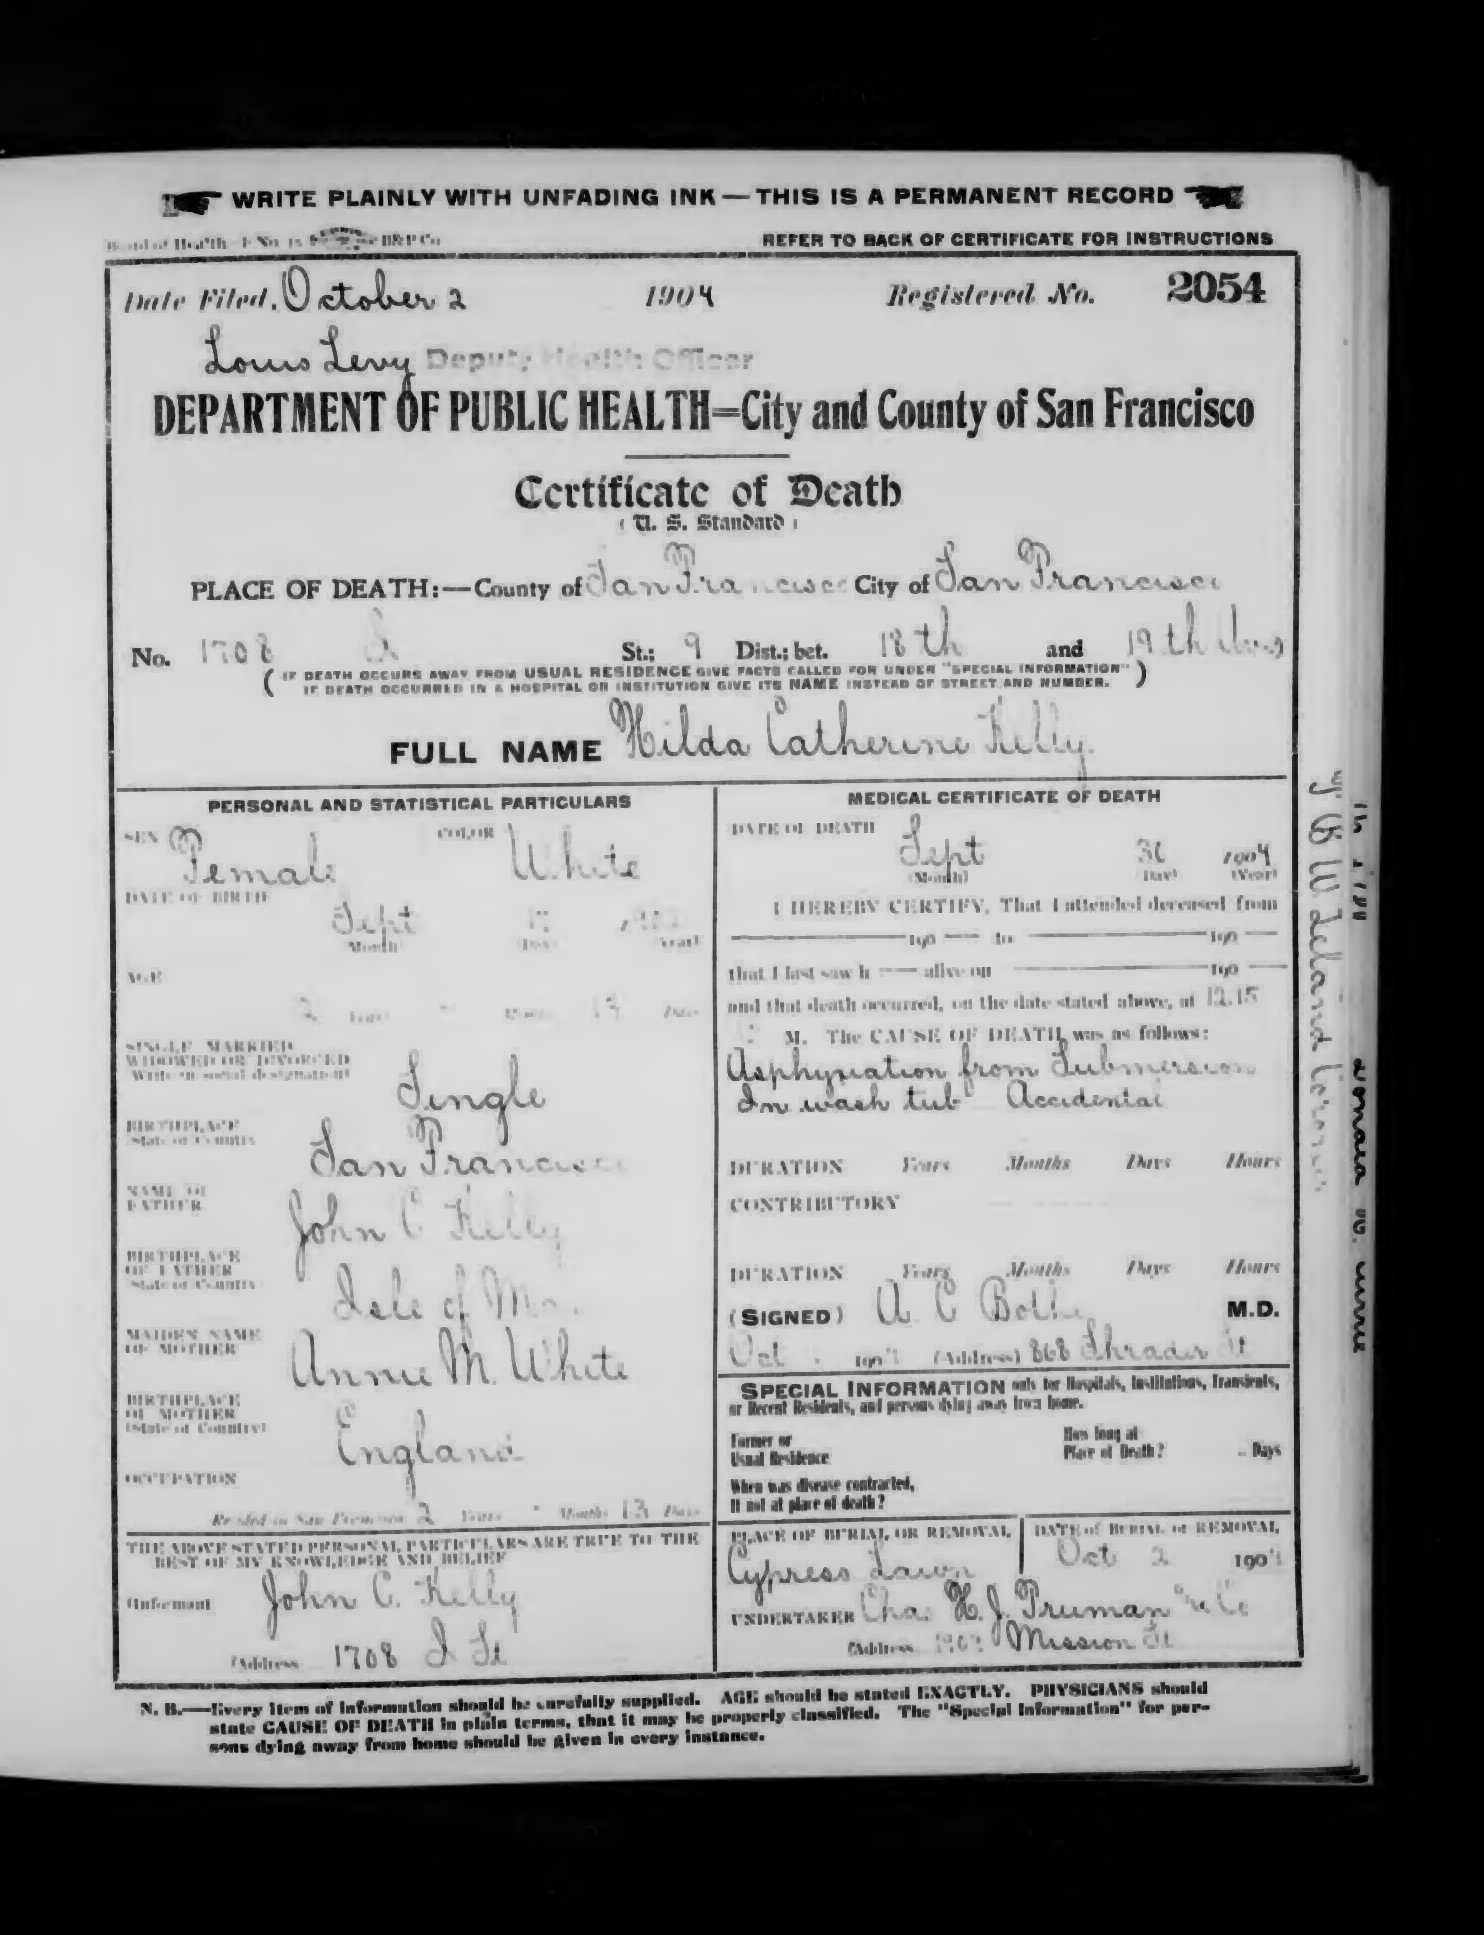 WRITE PLAINLY WITH UNFADING INK — THIS IS A PERMANENT RECORD
Board of Health F. No. 15 H&P Co
REFER TO BACK OF CERTIFICATE FOR INSTRUCTIONS
Date Filed, October 2 1904 Registered No. 2054
Louis Levy Deputy Health Officer
DEPARTMENT OF PUBLIC HEALTH=City and County of San Francisco
Certificate of Death
(U. S. Standard)
PLACE OF DEATH:—County of San Francisco City of San Francisco
No. 1708 I St.; 9 Dist.; bet. 18th and 19th Aves
(IF DEATH OCCURS AWAY FROM USUAL RESIDENCE GIVE FACTS CALLED FOR UNDER "SPECIAL INFORMATION"
IF DEATH OCCURRED IN A HOSPITAL OR INSTITUTION GIVE ITS NAME INSTEAD OF STREET AND NUMBER.)
FULL NAME Hilda Catherine Kelly.
PERSONAL AND STATISTICAL PARTICULARS
SEX Female COLOR White
DATE OF BIRTH
Sept 17
(Month) (Day) (Year)
AGE
2 Years - Months 13 Days
SINGLE, MARRIED,
WIDOWED OR DIVORCED
(Write in social designation)
Single
BIRTHPLACE
(State or Country)
San Francisco
NAME OF
FATHER
John C Kelly
BIRTHPLACE
OF FATHER
(State or Country)
Isle of Man
MAIDEN NAME
OF MOTHER
Annie M. White
BIRTHPLACE
OF MOTHER
(State or Country)
England
OCCUPATION
Resided in San Francisco 2 Years - Months 13 Days
THE ABOVE STATED PERSONAL PARTICULARS ARE TRUE TO THE
BEST OF MY KNOWLEDGE AND BELIEF
(Informant John C. Kelly
(Address 1708 I St
MEDICAL CERTIFICATE OF DEATH
DATE OF DEATH
Sept 30 1904
(Month) (Day) (Year)
I HEREBY CERTIFY, That I attended deceased from
190 to 190
that I last saw h — alive on 190
and that death occurred, on the date stated above, at 12.15
M. The CAUSE OF DEATH was as follows:
Asphyxiation from Submersion
In wash tub Accidental
DURATION Years Months Days Hours
CONTRIBUTORY
DURATION Years Months Days Hours
(SIGNED) A C Bothe M.D.
Oct 190 (Address) 868 Shrader St
SPECIAL INFORMATION only for Hospitals, Institutions, Transients,
or Recent Residents, and persons dying away from home.
Former or
Usual Residence
How long at
Place of Death? Days
When was disease contracted,
If not at place of death?
PLACE OF BURIAL OR REMOVAL
Cypress Lawn
DATE of BURIAL or REMOVAL
Oct 2 1904
UNDERTAKER Chas. H. J. Truman & Co
(Address 1909 Mission St
N. B.—Every item of information should be carefully supplied. AGE should be stated EXACTLY. PHYSICIANS should
state CAUSE OF DEATH in plain terms, that it may be properly classified. The "Special Information" for per-
sons dying away from home should be given in every instance.
T. B. W. Leland Coroner